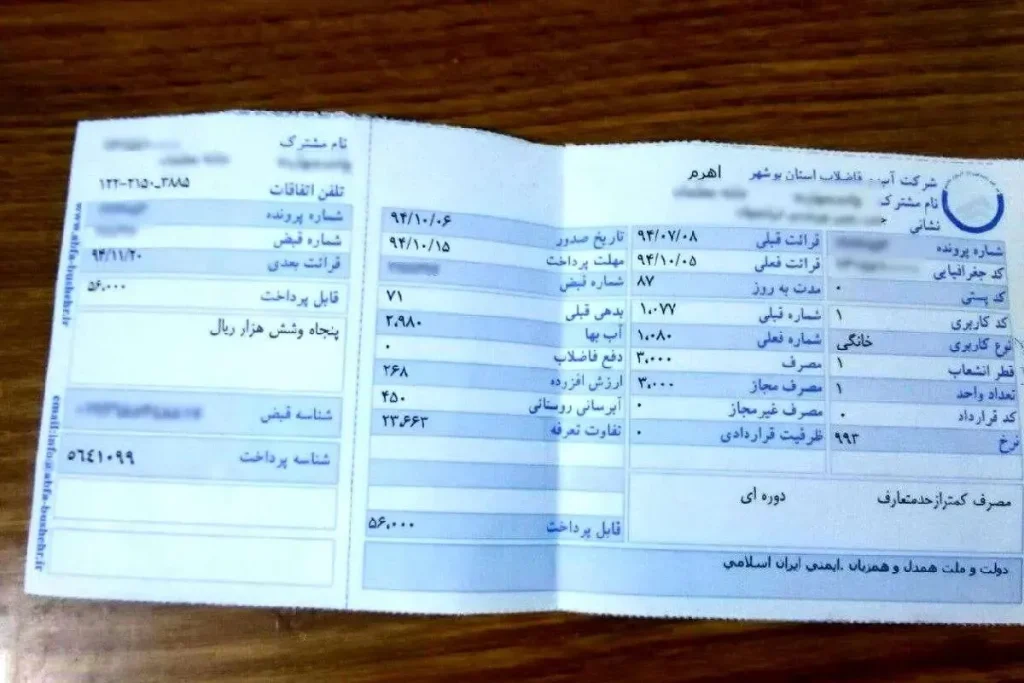 شرکت آب و فاضلاب استان بوشهر اهرم
نام مشترک
نشانی
شماره پرونده
کد جغرافیایی
کد پستی ۰
کد کاربری ۱
نوع کاربری خانگی
قطر انشعاب ۱
تعداد واحد ۱
کد قرارداد ۰
نرخ ۹۹۳
قرائت قبلی ۹۴/۰۷/۰۸
قرائت فعلی ۹۴/۱۰/۰۵
مدت به روز ۸۷
شماره قبلی ۱،۰۷۷
شماره فعلی ۱،۰۸۰
مصرف ۳،۰۰۰
مصرف مجاز ۳،۰۰۰
مصرف غیرمجاز ۰
ظرفیت قراردادی ۰
مصرف کمترازحدمتعارف دوره ای
تاریخ صدور ۹۴/۱۰/۰۶
مهلت پرداخت ۹۴/۱۰/۱۵
شماره قبض
بدهی قبلی ۷۱
آب بها ۲،۹۸۰
دفع فاضلاب ۰
ارزش افزوده ۲۶۸
آبرسانی روستائی ۴۵۰
تفاوت تعرفه ۲۳،۶۶۳
قابل پرداخت ۵۶،۰۰۰
دولت و ملت همدل و همزبان .ایمنی ایران اسلامی
نام مشترک
تلفن اتفاقات ۱۲۲-۲۱۵۰_۳۸۸۵
شماره پرونده
شماره قبض
قرائت بعدی ۹۴/۱۱/۲۰
قابل پرداخت ۵۶،۰۰۰
پنجاه وشش هزار ریال
شناسه قبض
شناسه پرداخت ۵۶۴۱۰۹۹
www.abfa-bushehr.ir
email:info@abfa-bushehr.ir